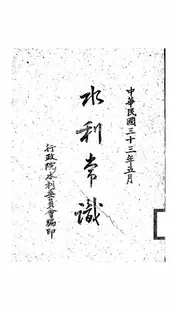 中華民國三十三年五月
水利常識
行政院水利委員會編印